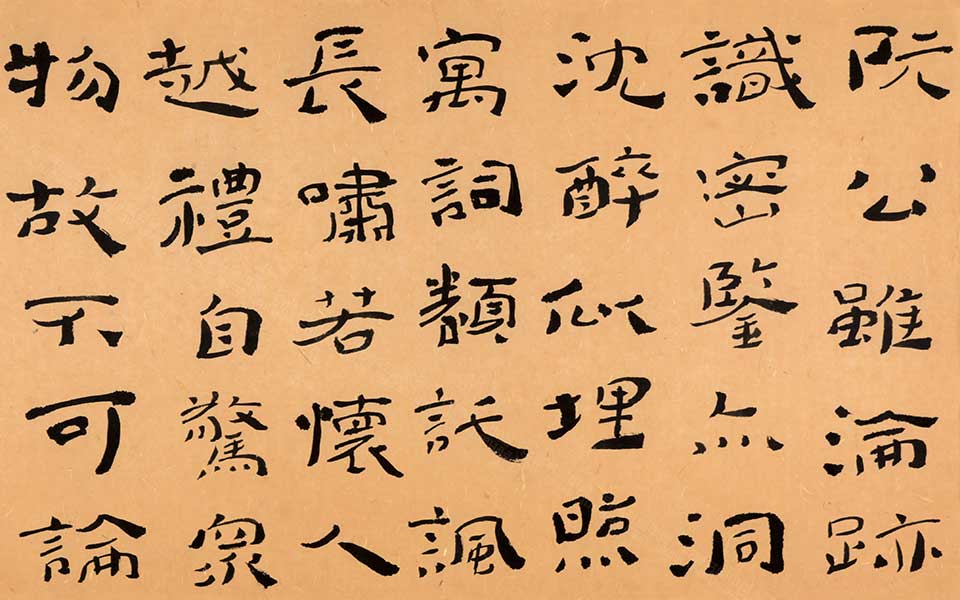 阮公雖淪跡
識密鑒亦洞
沈醉似埋照
寓詞類託諷
長嘯若懷人
越禮自驚眾
物故不可論